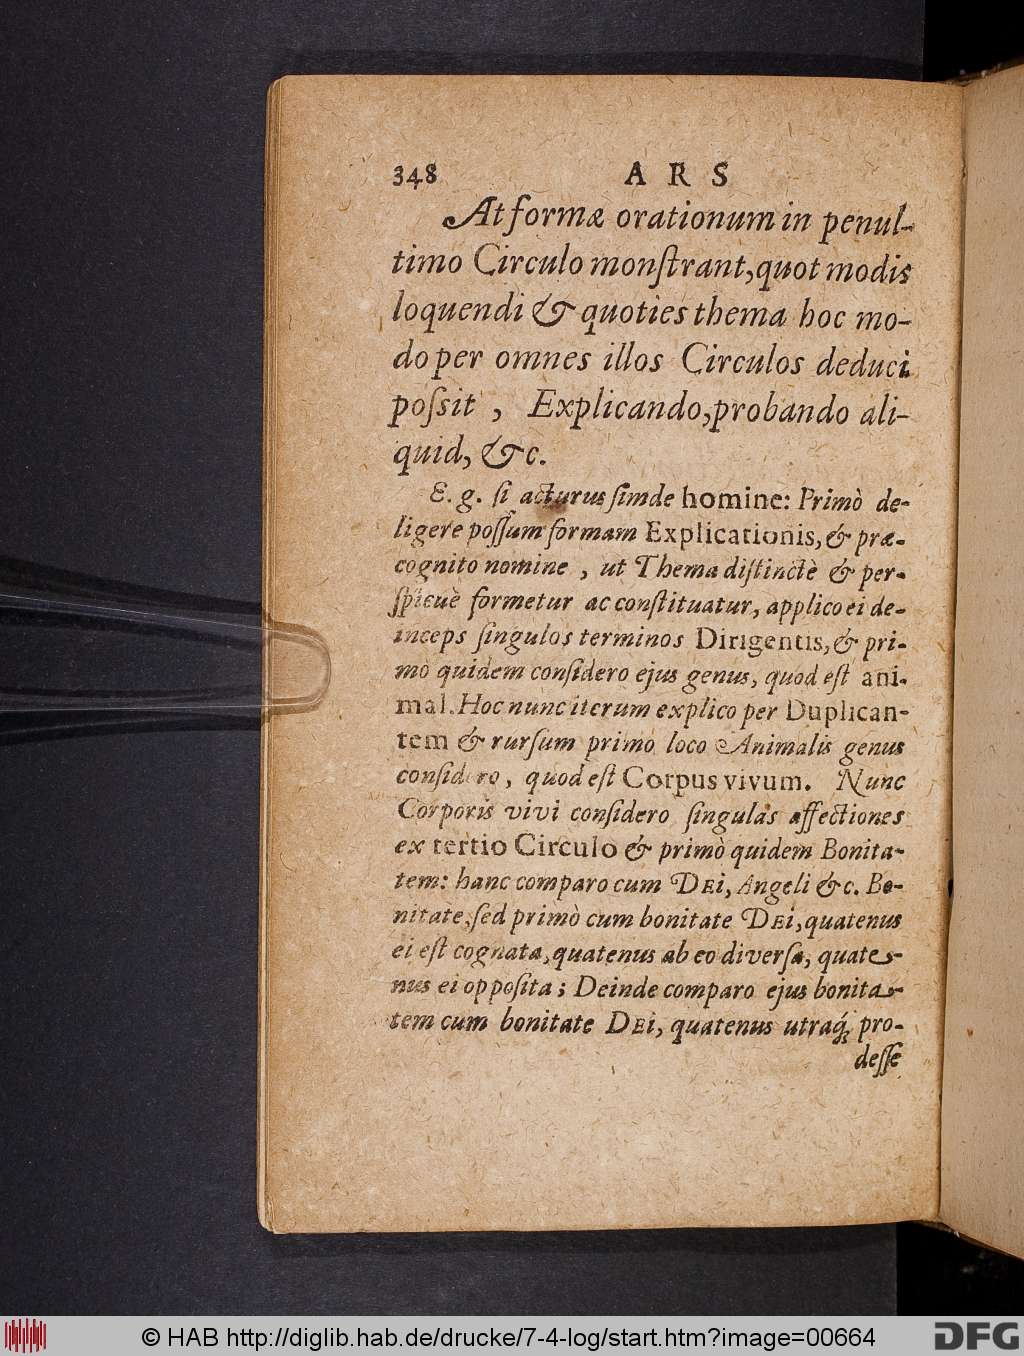 348 ARS
At formæ orationum in penul-
timo Circulo monſtrant, quot modis
loquendi & quoties thema hoc mo-
do per omnes illos Circulos deduci
poſsit , Explicando, probando ali-
quid, &c.
E. g. ſi acturus ſim de homine: Primò de-
ligere poſſum formam Explicationis, & præ-
cognito nomine , ut Thema diſtinctè & per-
ſpicuè formetur ac conſtituatur, applico ei de-
inceps ſingulos terminos Dirigentis, & pri-
mò quidem conſidero ejus genus, quod eſt ani-
mal. Hoc nunc iterum explico per Duplican-
tem & rurſum primo loco Animalis genus
conſidero, quod eſt Corpus vivum. Nunc
Corporis vivi conſidero ſingulas affectiones
ex tertio Circulo & primò quidem Bonita-
tem: hanc comparo cum DEi, Angeli &c. Bo-
nitate, ſed primò cum bonitate DEi, quatenus
ei eſt cognata, quatenus ab eo diverſa, quate-
nus ei oppoſita; Deinde comparo ejus bonita-
tem cum bonitate DEi, quatenus utraq́; pro-
deſſe
© HAB http://diglib.hab.de/drucke/7-4-log/start.htm?image=00664
DFG